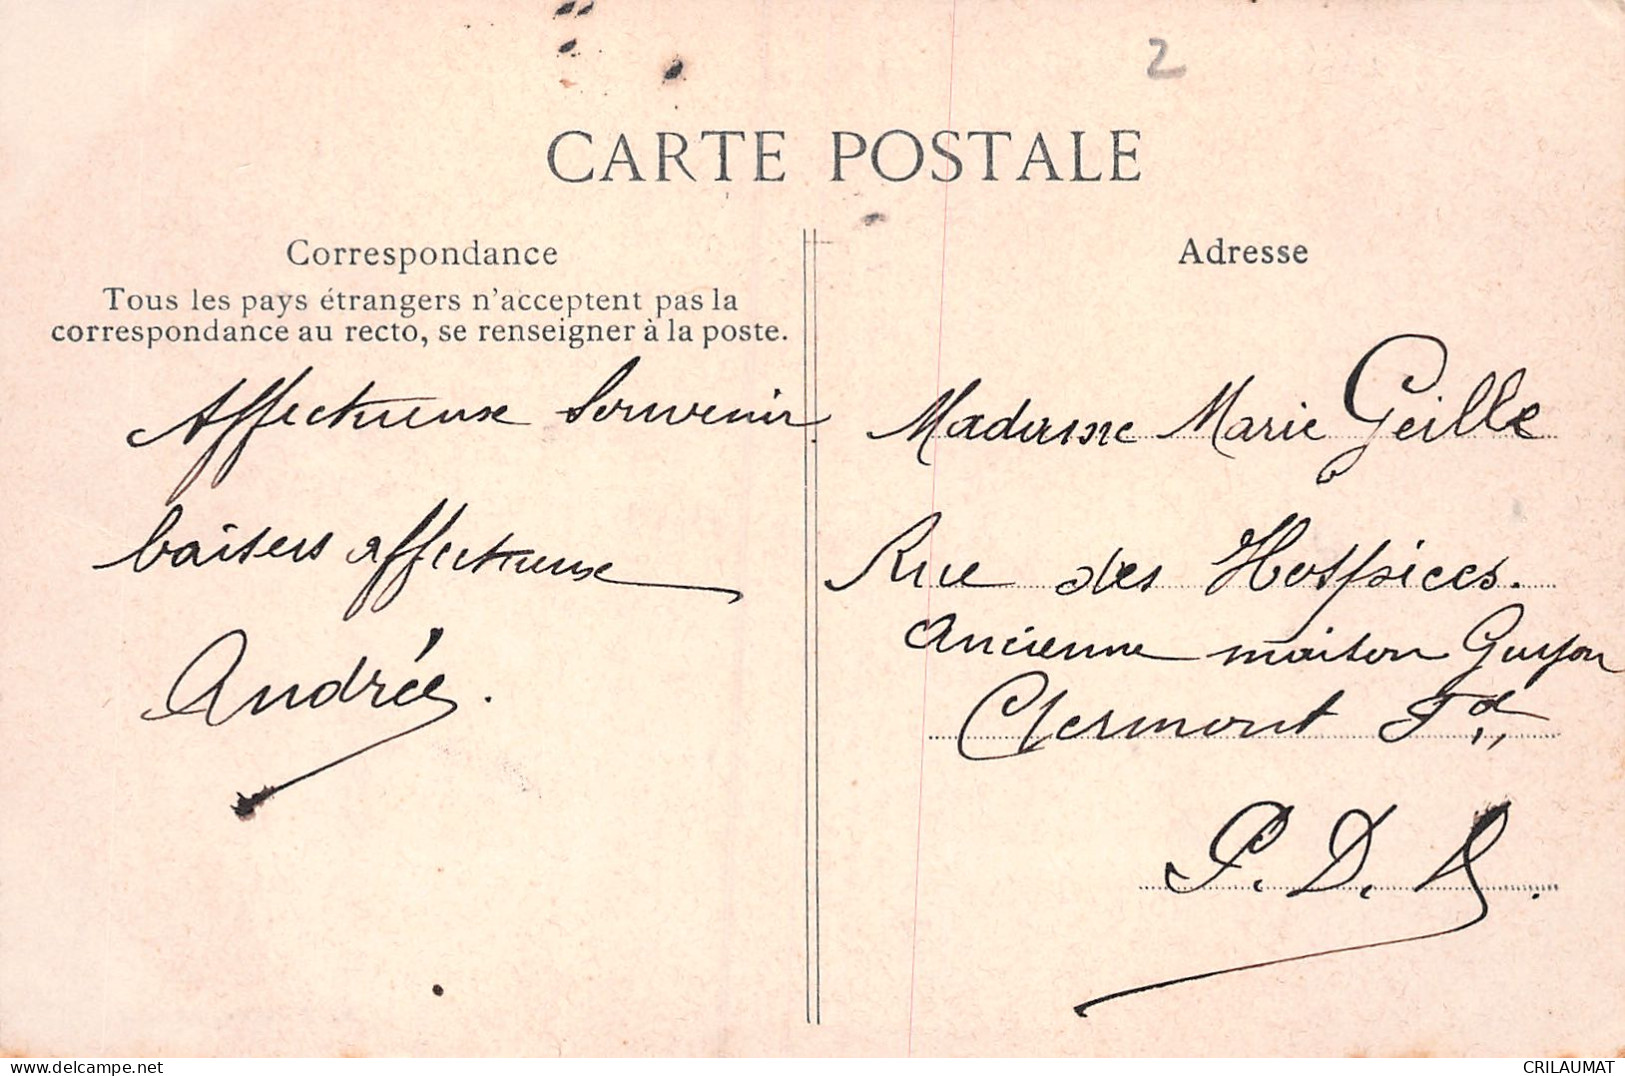 2
CARTE POSTALE
Correspondance
Tous les pays étrangers n'acceptent pas la
correspondance au recto, se renseigner à la poste.
Affectueux Souvenir.
baisers affectueux
Andrée.
Adresse
Madame Marie Geille
Rue des Hospices.
Ancienne maison Guyon
Clermont Fd
P. D. D.
delcampe.net
CRILAUMAT